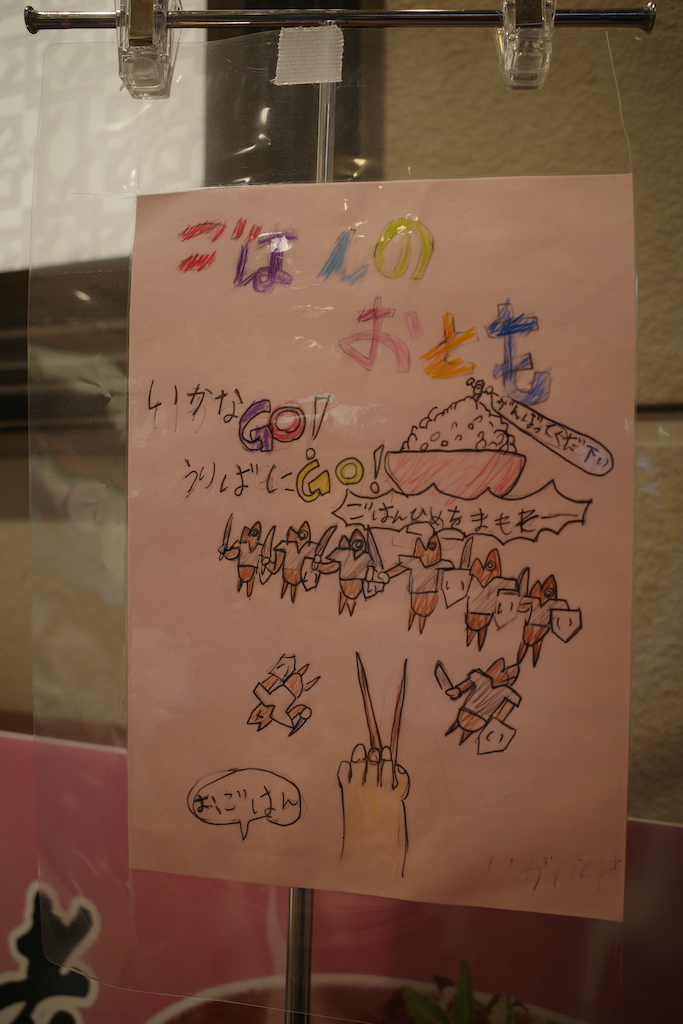 ごはんの
おとも
いかなGO!
うりばにGO!
がんばってくだ下い
ごはんひめをまもれー
おいごはん